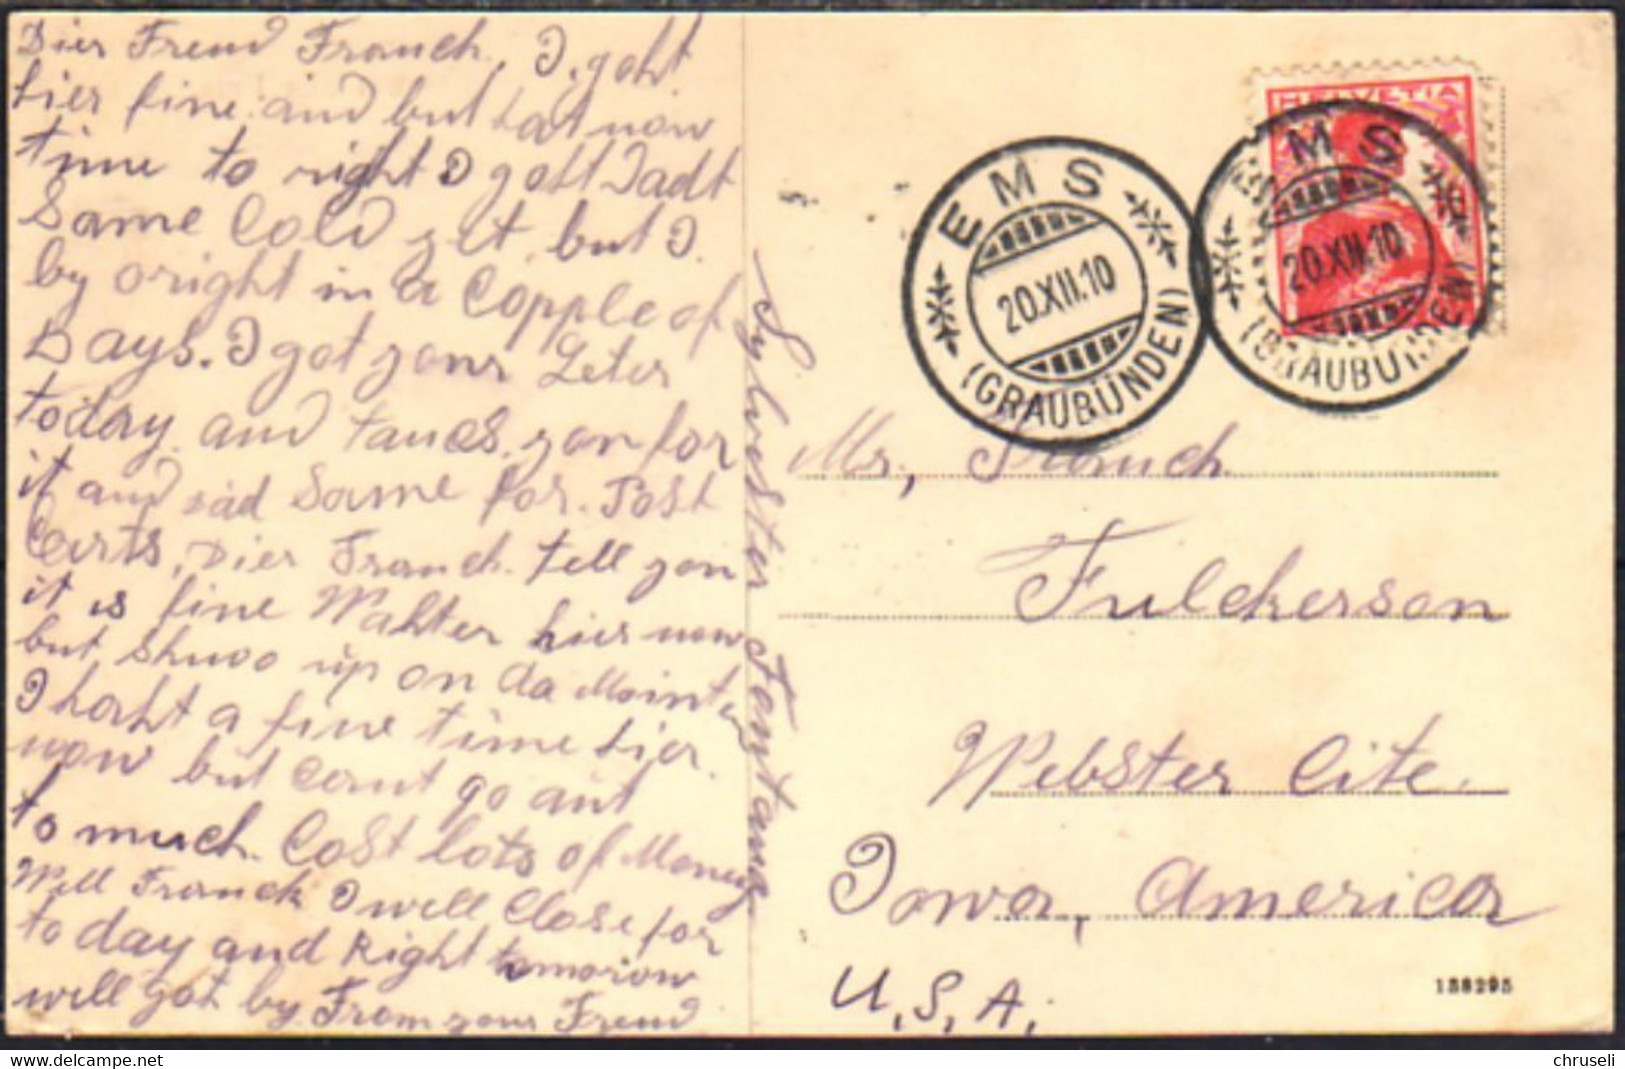 Dier Freud Franch. I. goht
hier fine and but hat now
time to right I gott Jadt
Same Cold yet, but I.
by oright in a Copple of
Days. I got your Leter
today and tancs. you for
it and sad Same for. Post
Carts, Dier Franch. tell you
it is fine Wahter hier now
but shnoo up on da Mointey
I hoht a fine time hier.
now but Cant go aut
to much. Cost lots of Money
Well Franck I will Close for
to day and Right tomoriow
will got by From your Freud
Sylvester Fontana
HELVETIA
EMS
20.XII.10
(GRAUBÜNDEN)
EMS
20.XII.10
(GRAUBÜNDEN)
Mr, Franch
Fulckerson
Webster Cite.
Iowa, America
U.S.A.
188295
© delcampe.net
chruseli